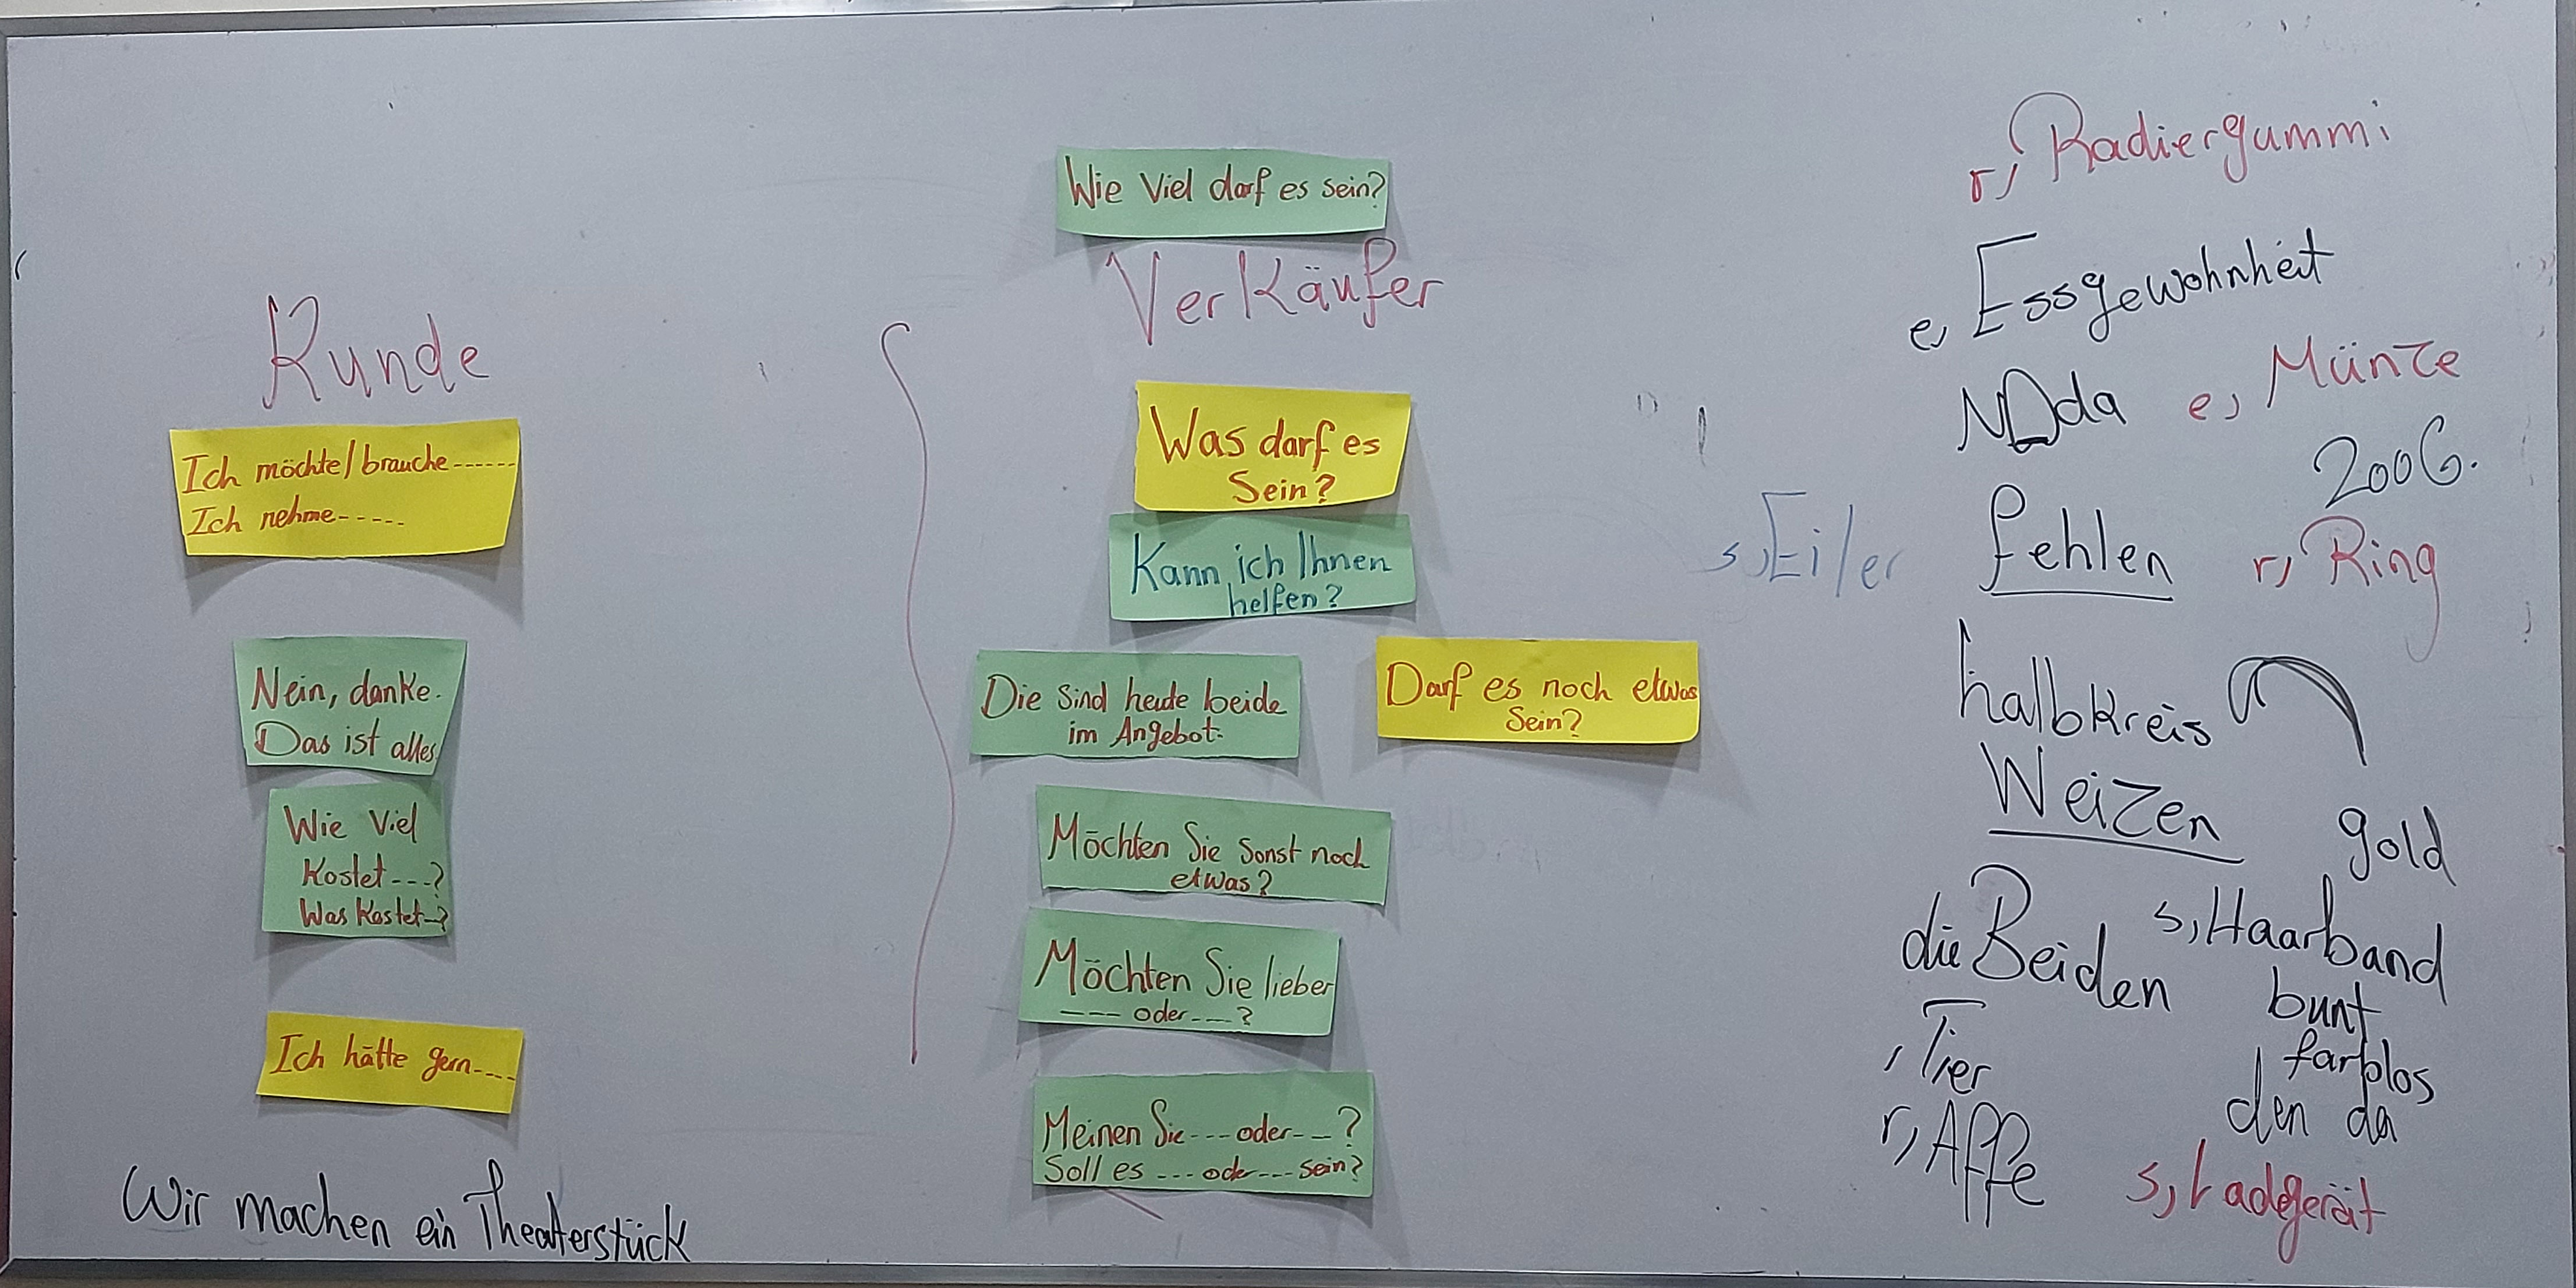 Kunde
Ich möchte/brauche------
Ich nehme-----
Nein, danke.
Das ist alles
Wie Viel
Kostet---?
Was Kostet--?
Ich hätte gern----
Wir machen ein Theaterstück
Wie Viel darf es sein?
Verkäufer
Was darf es
Sein?
Kann ich Ihnen
helfen?
Die Sind heute beide
im Angebot.
Darf es noch etwas
Sein?
Möchten Sie Sonst noch
etwas?
Möchten Sie lieber
--- oder---?
Meinen Sie---oder--?
Soll es ---oder--- sein?
s, Ei/er
r, Radiergummi
e, Essgewohnheit
e, Münze
200G.
fehlen
r, Ring
halbkreis
Weizen
gold
die Beiden
s, Haarband
bunt
, Tier
farblos
den da
r, Affe
s, Ladegerät